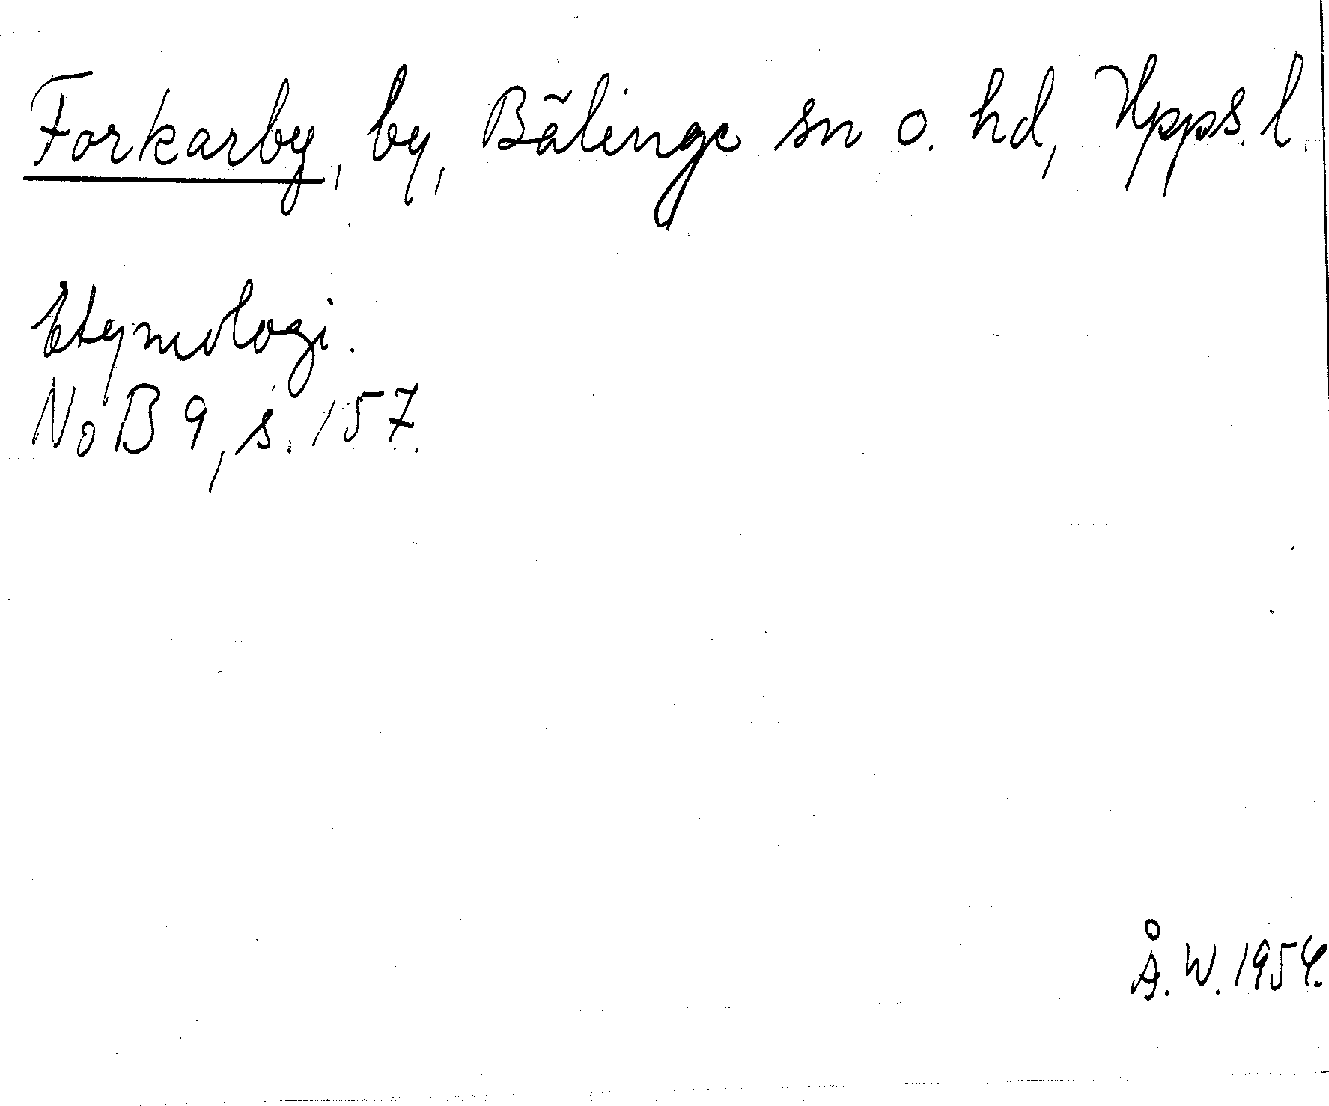 Forkarby, by, Bälinge sn o. hd, Upps. l.
Etymologi.
NoB 9, s. 157.
Å. W. 1954.